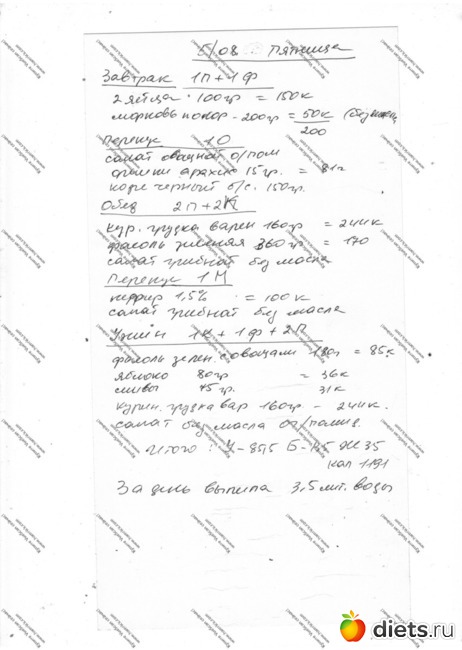 5/08. Пятница
Завтрак 1П+1Ф
2 яйца 100гр = 150к
морковь по кор - 200гр = 50к (без масла
200
Перекус 1О
салат овощной о/пом
арахис 15гр. = 81к
кофе черный б/с. 150гр.
Обед 2П+2К
кур. грудка варен 160гр = 244к
фасоль зеленая 360гр = 170
салат грибной без масла
Перекус 1М
кефир 1,5% = 100к
салат грибной без масла
Ужин 1К+1Ф+2П
фасоль зелен. с овощами 180г = 85к
яблоко 80гр = 36к
сливы 75гр. 31к
курин. грудка вар 160гр - 244к.
салат без масла ог/помид.
Итого: Ж 35
кал 1191
За день выпила 3,5 лит. воды
diets.ru